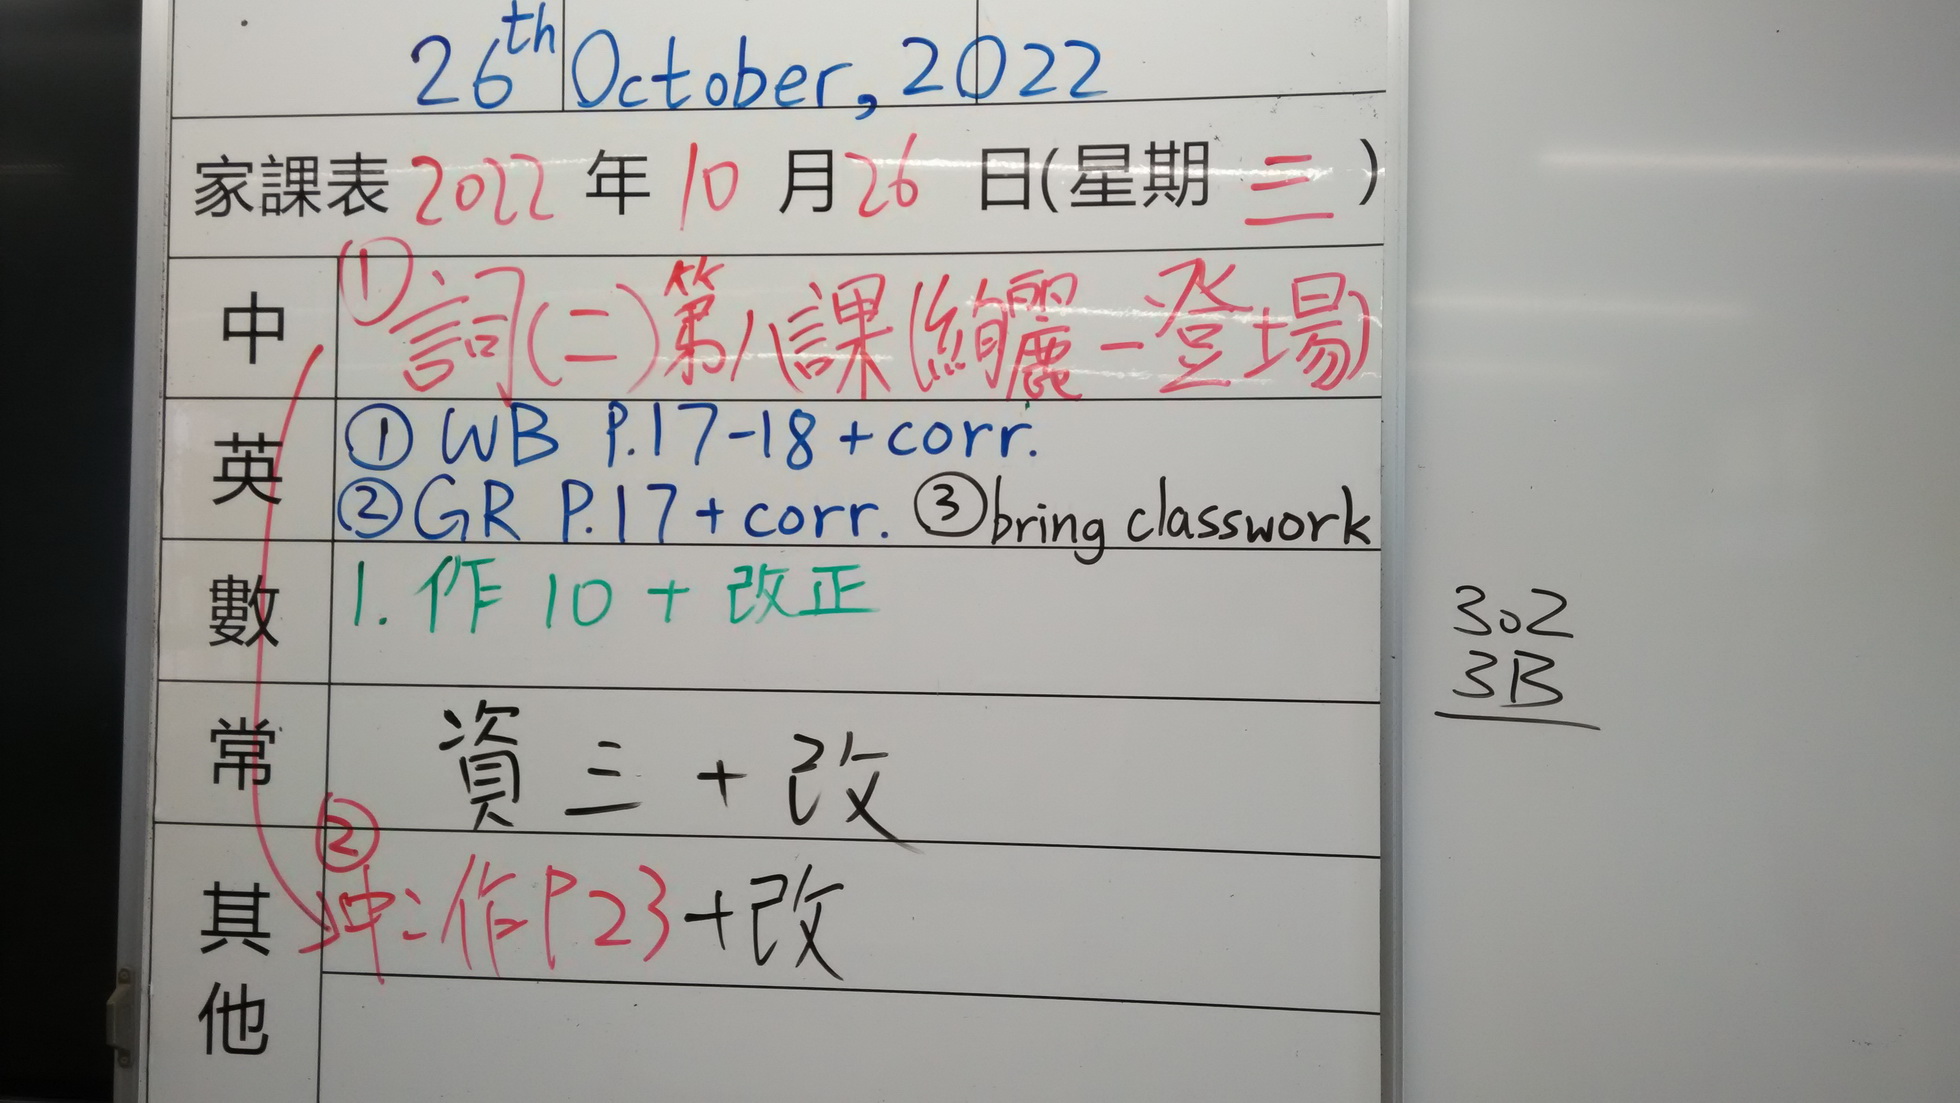 26th October, 2022
家課表 2022 年 10 月 26 日(星期 三 )
中 ① 詞(二)第八課(絢麗—登場)
英 ① WB P.17-18 + corr.
② GR P.17 + corr. ③ bring classwork
數 1. 作 10 + 改正
常 資 三 + 改
其他 ② 作 P23 + 改
302
3B